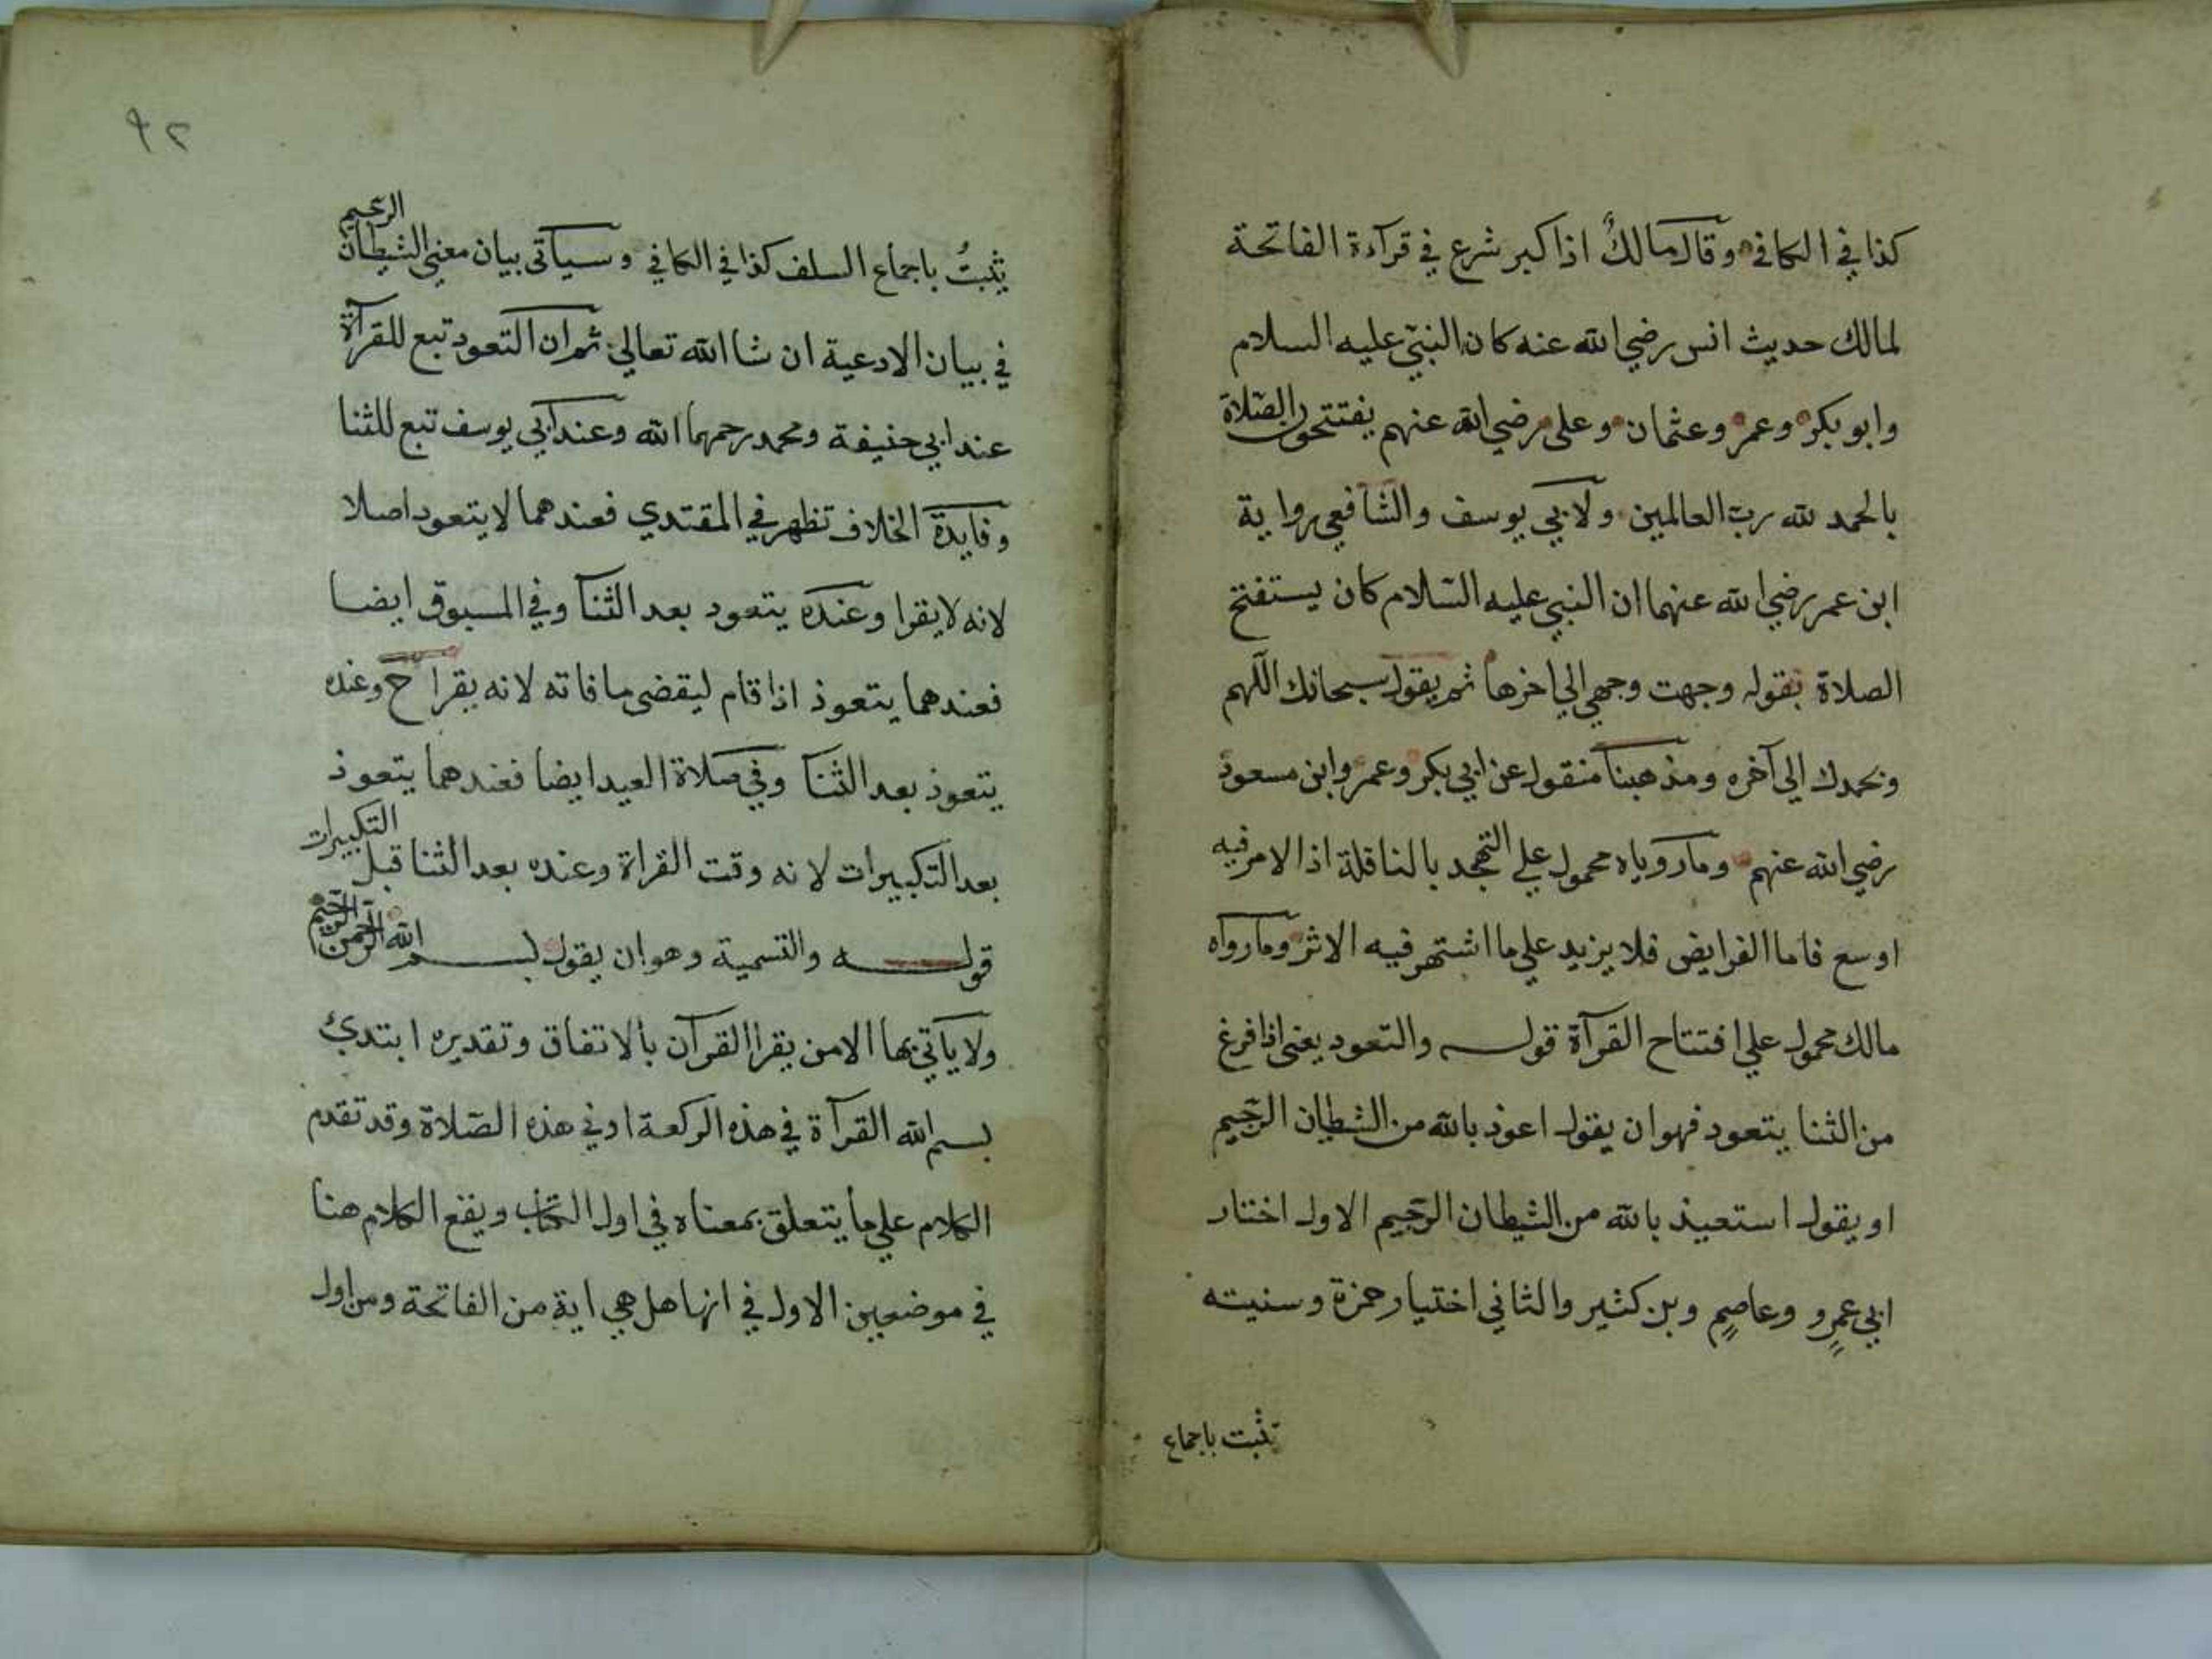 كذا في الكافي وقال مالك اذا كبر شرع في قرآءة الفاتحة
لمالك حديث انس رضي الله عنه كان النبي عليه السلام
وابو بكر وعمر وعثمان وعلى رضي الله عنهم يفتتحون الصلاة
بالحمد لله رب العالمين ولابي يوسف والشافعي رواية
ابن عمر رضي الله عنهما ان النبي عليه السلام كان يستفتح
الصلاة بقوله وجهت وجهي الي اخرها ثم يقول سبحانك اللهم
وبحمدك الي آخره ومذهبنا منقول عن ابي بكر وعمر وابن مسعود
رضي الله عنهم وما روياه محمول علي التهجد بالنافلة اذ الامر فيه
اوسع فاما الفرايض فلا يزيد علي ما اشتهر فيه الاثر وما رواه
مالك محمول علي افتتاح القرآة قوله والتعود يعنى اذا فرغ
من الثنا يتعود فهو ان يقول اعوذ بالله من الشطان الرجيم
او يقول استعيذ بالله من الشيطان الرجيم الاول اختار
ابي عمرو وعاصم وبن كثير والثاني اختيار حمزة وسنيته
تثبت باجماع
٩٢
يثبت باجماع السلف كذا في الكافي وسياتي بيان معني الشيطان الرجيم
في بيان الادعية ان شا الله تعالي ثم ان التعود تبع للقرآة
عند ابي حنيفة ومحمد رحمهما الله وعند ابي يوسف تبع للثنا
وفايدة الخلاف تظهر في المقتدي فعندهما لا يتعود اصلا
لانه لا يقرا وعنده يتعود بعد الثنا وفي المسبوق ايضا
فعندهما يتعوذ اذا قام ليقضى ما فاته لانه يقرا ح وعنده
يتعوذ بعد الثنا وفي صلاة العيد ايضا فعندهما يتعوذ
بعد التكبيرات لانه وقت القراة وعنده بعد الثنا قبل التكبيرات
قوله والتسمية وهو ان يقول بسم الله الرحمن الرحيم
ولا ياتي بها الا من يقرا القرآن بالاتفاق وتقديره ابتدئ
بسم الله القرآة في هذه الركعة او في هذه الصلاة وقد تقدم
الكلام علي ما يتعلق بمعناه في اول الكتاب ويقع الكلام هنا
في موضعين الاول في انها هل هي اية من الفاتحة ومن اول